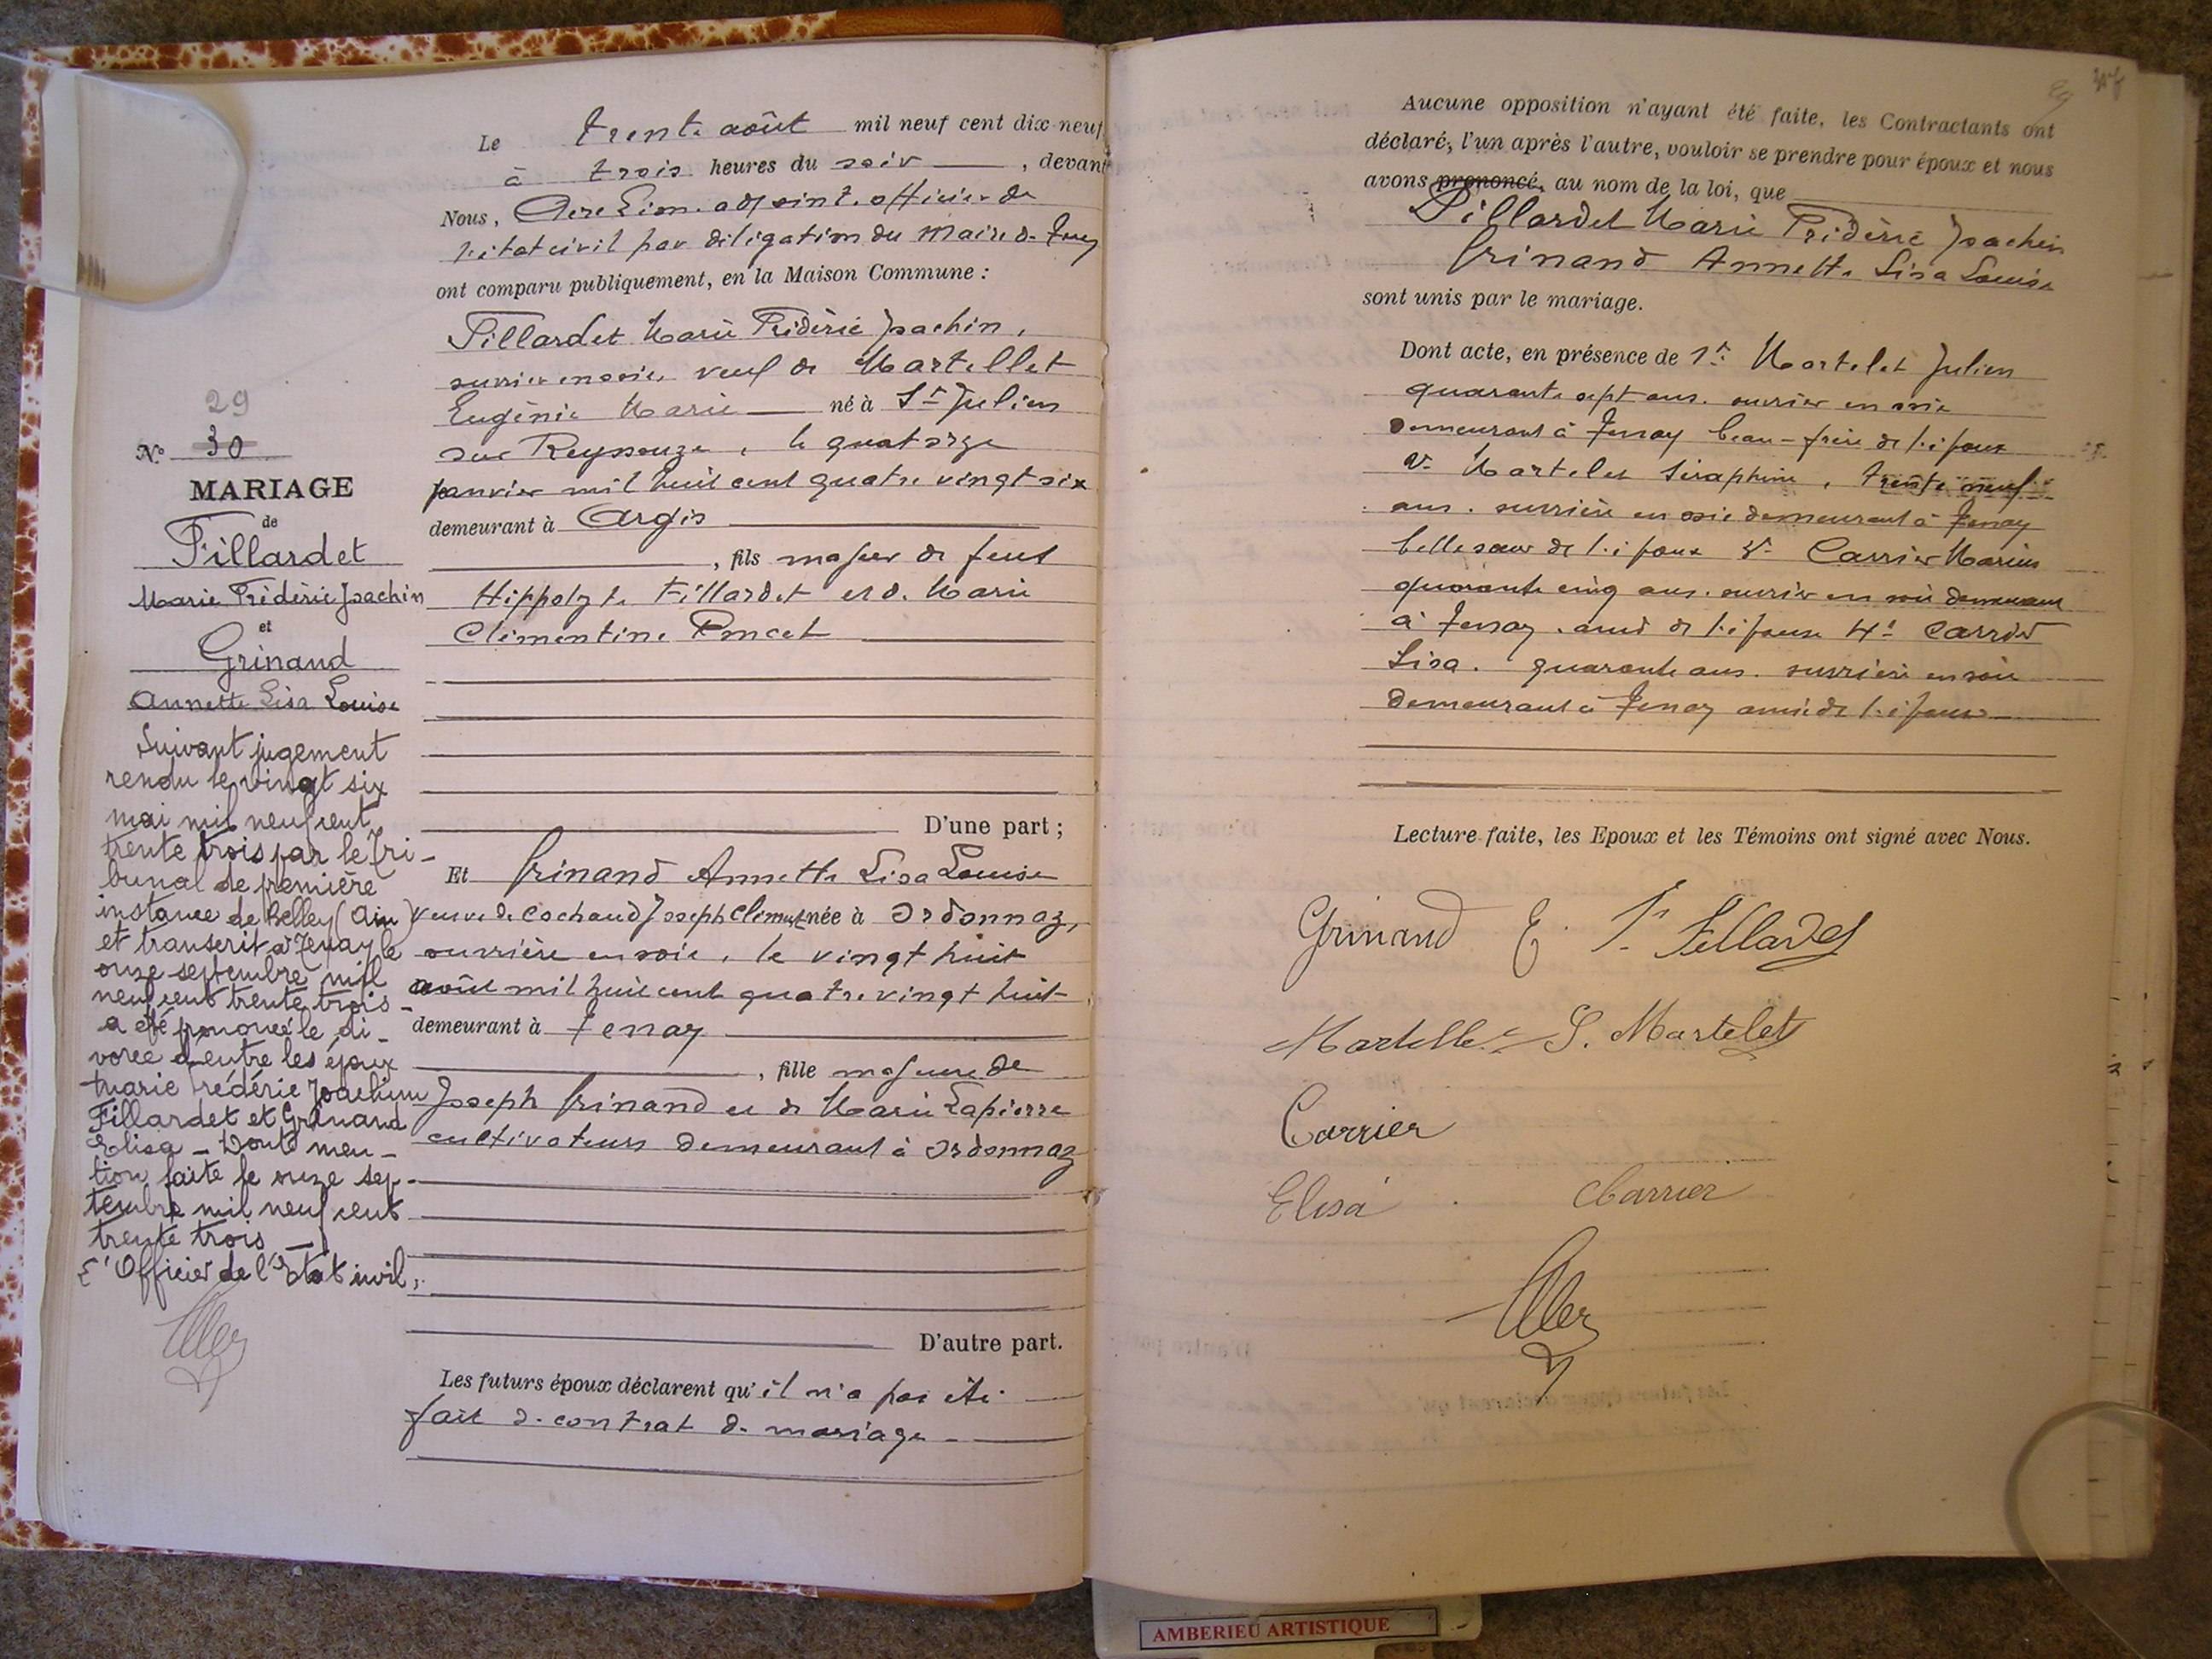 29
N° 30
MARIAGE
de
Fillardet
Marie Frédéric Joachin
et
Grinand
Annette Lisa Louise
Suivant jugement
rendu le vingt six
mai mil neuf cent
trente trois par le Tri-
bunal de première
instance de Belley (Ain)
et transcrit à Tenay le
onze septembre mil
neuf cent trente trois-
a été prononcé le di-
vorce d'entre les époux
Marie Frédéric Joachim
Fillardet et Grinand
Elisa - Dont men-
tion faite le onze sep-
tembre mil neuf cent
trente trois -
L'Officier de l'Etat civil,
Le trente août mil neuf cent dix-neuf
à trois heures du soir, devant
Nous, adjoint officier de
l'état civil par déligation du Maire de Tenay
ont comparu publiquement, en la Maison Commune :
Fillardet Marie Frédéric Joachin,
ouvrier en soie, veuf de Martellet
Eugénie Marie né à St Julien
sur Reyssouze, le quatorze
janvier mil huit cent quatre vingt six
demeurant à Argis
, fils majeur de feus
Hippolyte Fillardet et de Marie
Clémentine Poncet
D'une part ;
Et Grinand Annette Lisa Louise
veuve de Cochaud Joseph née à Ordonnaz,
ouvrière en soie, le vingt huit
août mil huit cent quatre vingt huit
demeurant à Tenay
, fille majeure de
Joseph Grinand et de Marie Lapierre
cultivateurs demeurant à Ordonnaz
D'autre part.
Les futurs époux déclarent qu'il n'a pas été
fait de contrat de mariage -
Aucune opposition n'ayant été faite, les Contractants ont
déclaré, l'un après l'autre, vouloir se prendre pour époux et nous
avons prononcé, au nom de la loi, que
Fillardet Marie Frédéric Joachin
Grinand Annette Lisa Louise
sont unis par le mariage.
Dont acte, en présence de 1° Martelet Julien
quarante sept ans. ouvrier en soie
demeurant à Tenay beau-frère de l'époux
2° Martelet Séraphine, trente neuf
ans. ouvrière en soie demeurant à Tenay
belle soeur de l'époux 3° Carrier Marius
quarante cinq ans. ouvrier en soie demeurant
à Tenay. ami de l'épouse 4° Carrier
Lisa. quarante ans. ouvrière en soie
demeurant à Tenay amie de l'épouse
Lecture faite, les Epoux et les Témoins ont signé avec Nous.
Grinand E. Fillardet
Martellet S. Martelet
Carrier
Elisa Carrier
AMBERIEU ARTISTIQUE